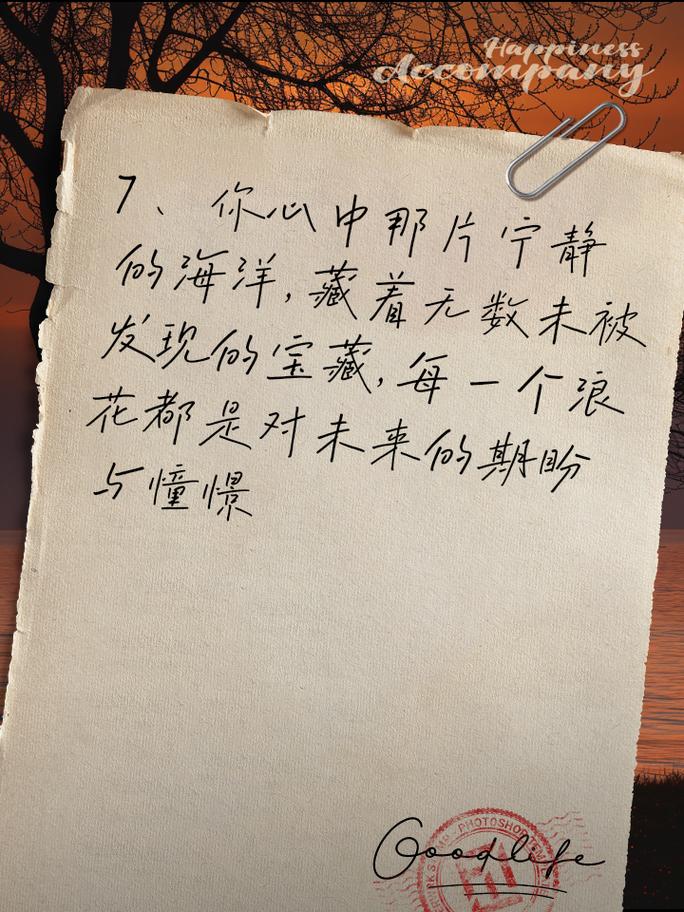 Happiness
Accompany
7、你心中那片宁静
的海洋,藏着无数未被
发现的宝藏,每一个浪
花都是对未来的期盼
与憧憬
PHOTOSHOP
Goodlife